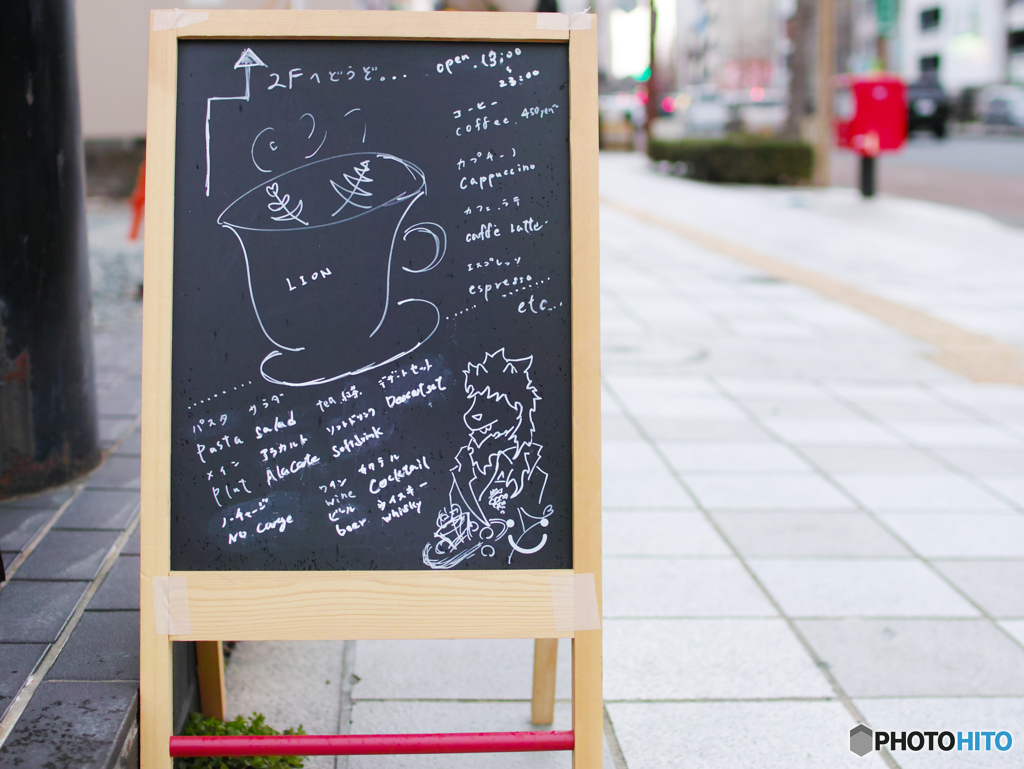 2Fへどうぞ...
open 13:00
~
23:00
コーヒー
coffee. 450yen~
カプチーノ
Cappuccino
カフェ.ラテ
caffè Latte
エスプレッソ
espresso
etc...
LION
パスタ サラダ
pasta salad
メイン アラカルト
plat Alacarte
ノーチャージ
No carge
tea. 紅茶 デザートセット
Dessert set
ソフトドリンク
Softdrink
ワイン カクテル
wine Cocktail
ビール ウイスキー
beer whisky
PHOTOHITO